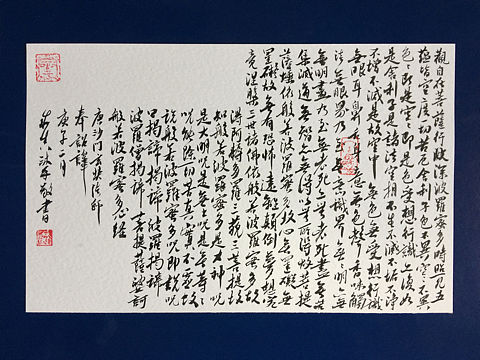 觀自在菩薩行深般若波羅蜜多時照見五
蘊皆空度一切苦厄舍利子色不異空空不異
色色即是空空即是色受想行識亦復如
是舍利子是諸法空相不生不滅不垢不淨
不增不減是故空中無色無受想行識
無眼耳鼻舌身意無色聲香味觸
法無眼界乃至無意識界無無明亦無
無明盡乃至無老死亦無老死盡無苦
集滅道無智亦無得以無所得故菩提
薩埵依般若波羅蜜多故心無罣礙無
罣礙故無有恐怖遠離顛倒夢想究
竟涅槃三世諸佛依般若波羅蜜多故
得阿耨多羅三藐三菩提故
知般若波羅蜜多是大神咒
是大明咒是無上咒是無等等
咒能除一切苦真實不虛故
說般若波羅蜜多咒即說咒
曰揭諦揭諦波羅揭諦
波羅僧揭諦菩提薩婆訶
般若波羅蜜多心經
唐沙門玄奘法師
奉詔譯
庚子二月
敬書